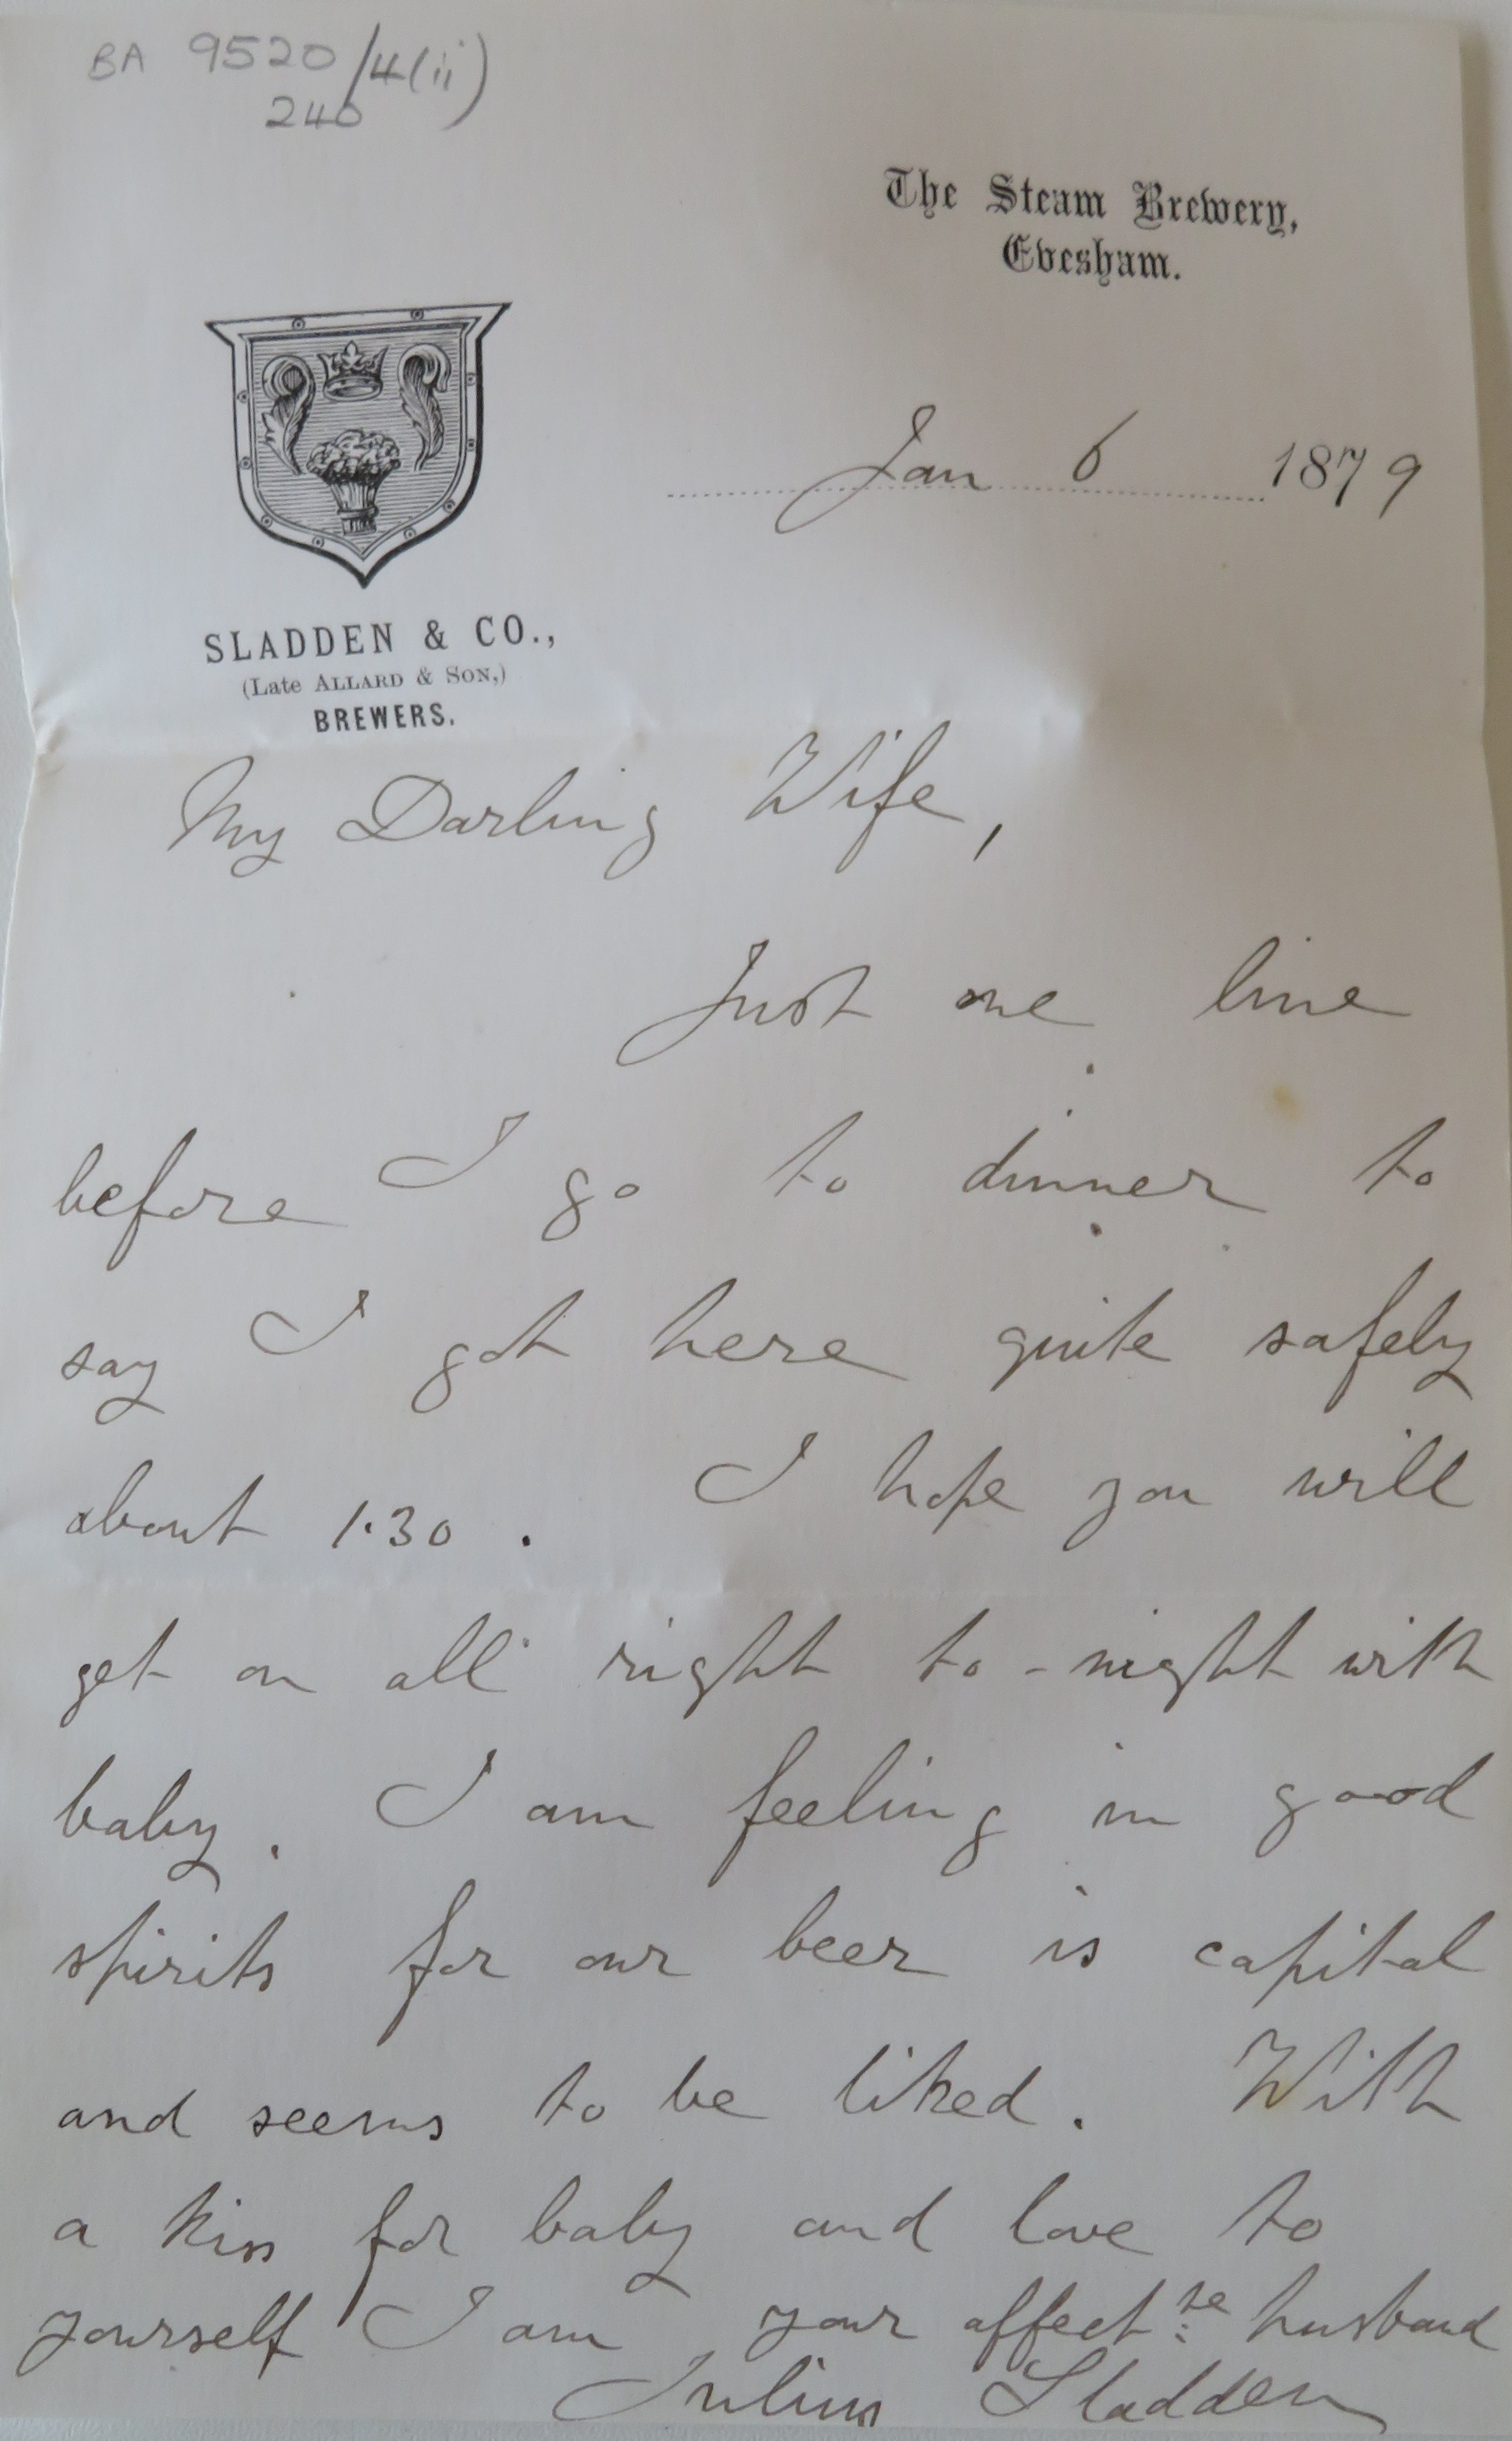 BA 9520/4(ii)
240
The Steam Brewery,
Evesham.
Jan 6 1879
SLADDEN & CO.,
(Late ALLARD & SON,)
BREWERS.
My Darling Wife,
Just one line
before I go to dinner to
say I got here quite safely
about 1.30. I hope you will
get on all right to-night with
baby. I am feeling in good
spirits for our beer is capital
and seems to be liked. With
a kiss for baby and love to
yourself I am your affectte husband
Julius Sladden